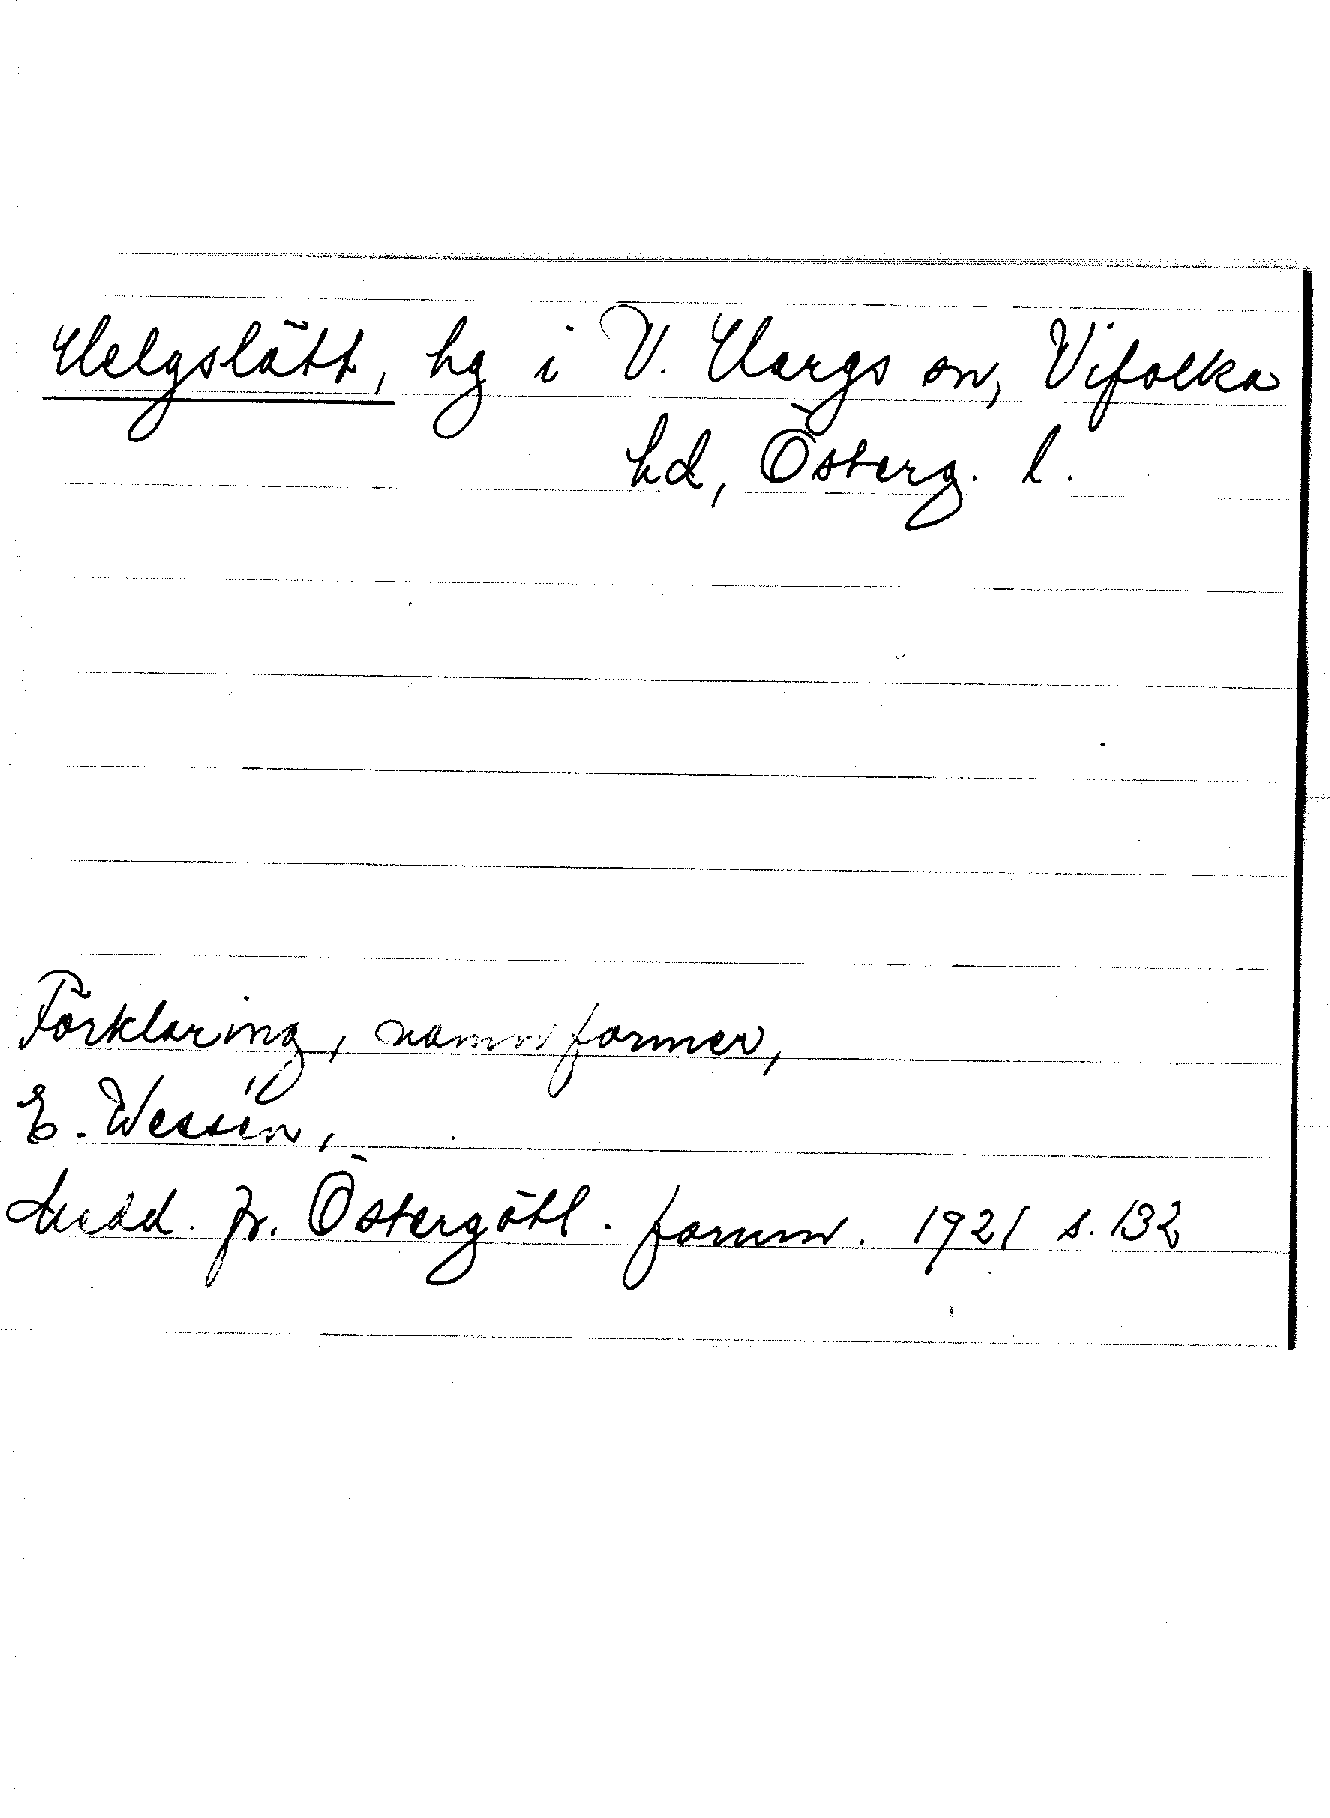 Helgslätt, hg i V. Hargs sn, Vifolka
hd, Österg. l.
Förklaring, namnformer,
E. Wessén,
Medd. fr. Östergötl. fornm. 1921 s. 132